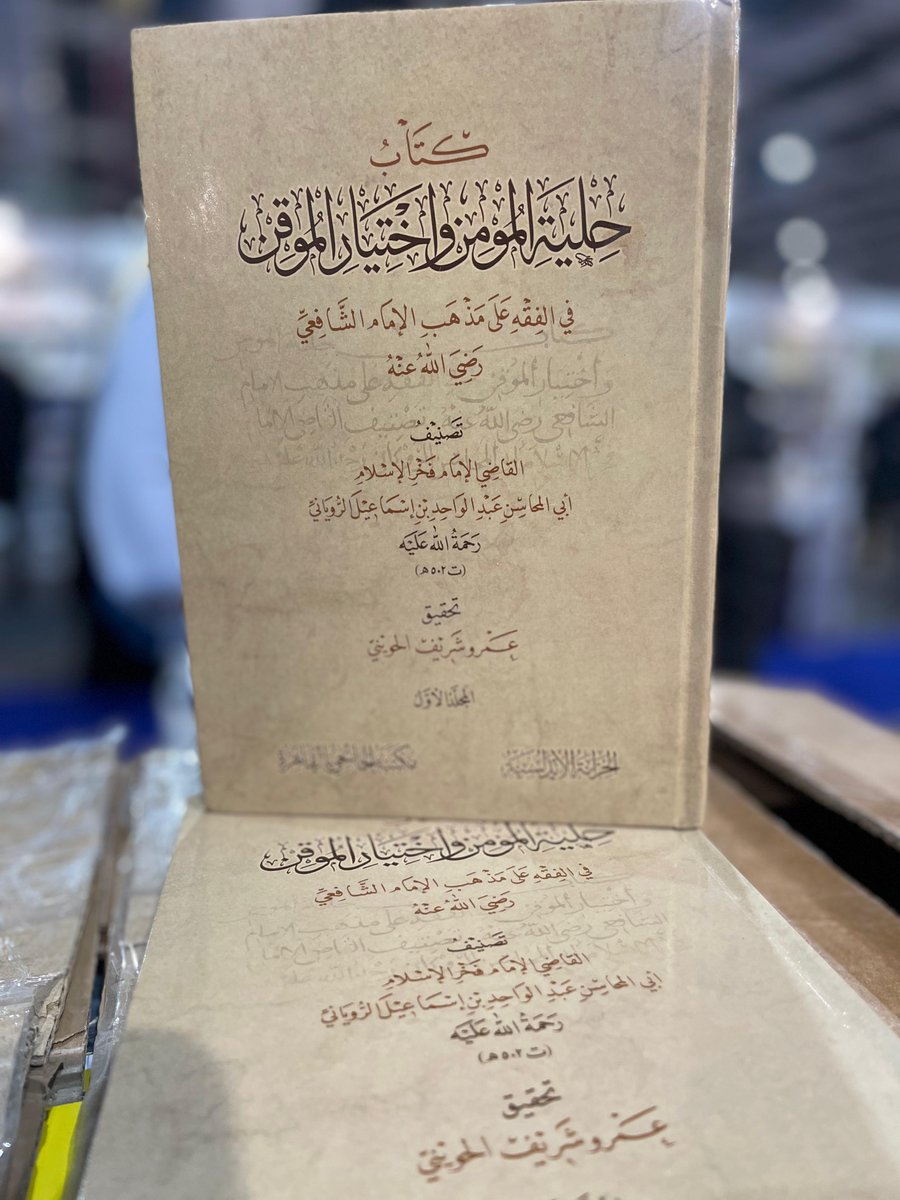 كِتَابُ
حِلْيَةِ المُؤْمِنِ وَاخْتِيَارِ المُوقِنِ
في الفِقْهِ عَلَى مَذْهَبِ الإِمَامِ الشَّافِعِيِّ
رَضِيَ اللهُ عَنْهُ
تَصْنِيفُ
القَاضِي الإِمَامِ فَخْرِ الإِسْلَامِ
أَبِي المَحَاسِنِ عَبْدِ الوَاحِدِ بْنِ إِسْمَاعِيلَ الرُّويَانِيِّ
رَحْمَةُ اللهِ عَلَيْهِ
(ت ٥٠٢هـ)
تحقيق
عَمْرو شَرِيف الحوينيّ
المجلد الأوّل
الخزانة الأندلسية
مكتبة الخانجي القاهرة
حِلْيَةِ المُؤْمِنِ وَاخْتِيَارِ المُوقِنِ
في الفِقْهِ عَلَى مَذْهَبِ الإِمَامِ الشَّافِعِيِّ
رَضِيَ اللهُ عَنْهُ
تَصْنِيفُ
القَاضِي الإِمَامِ فَخْرِ الإِسْلَامِ
أَبِي المَحَاسِنِ عَبْدِ الوَاحِدِ بْنِ إِسْمَاعِيلَ الرُّويَانِيِّ
رَحْمَةُ اللهِ عَلَيْهِ
(ت ٥٠٢هـ)
تحقيق
عَمْرو شَرِيف الحوينيّ